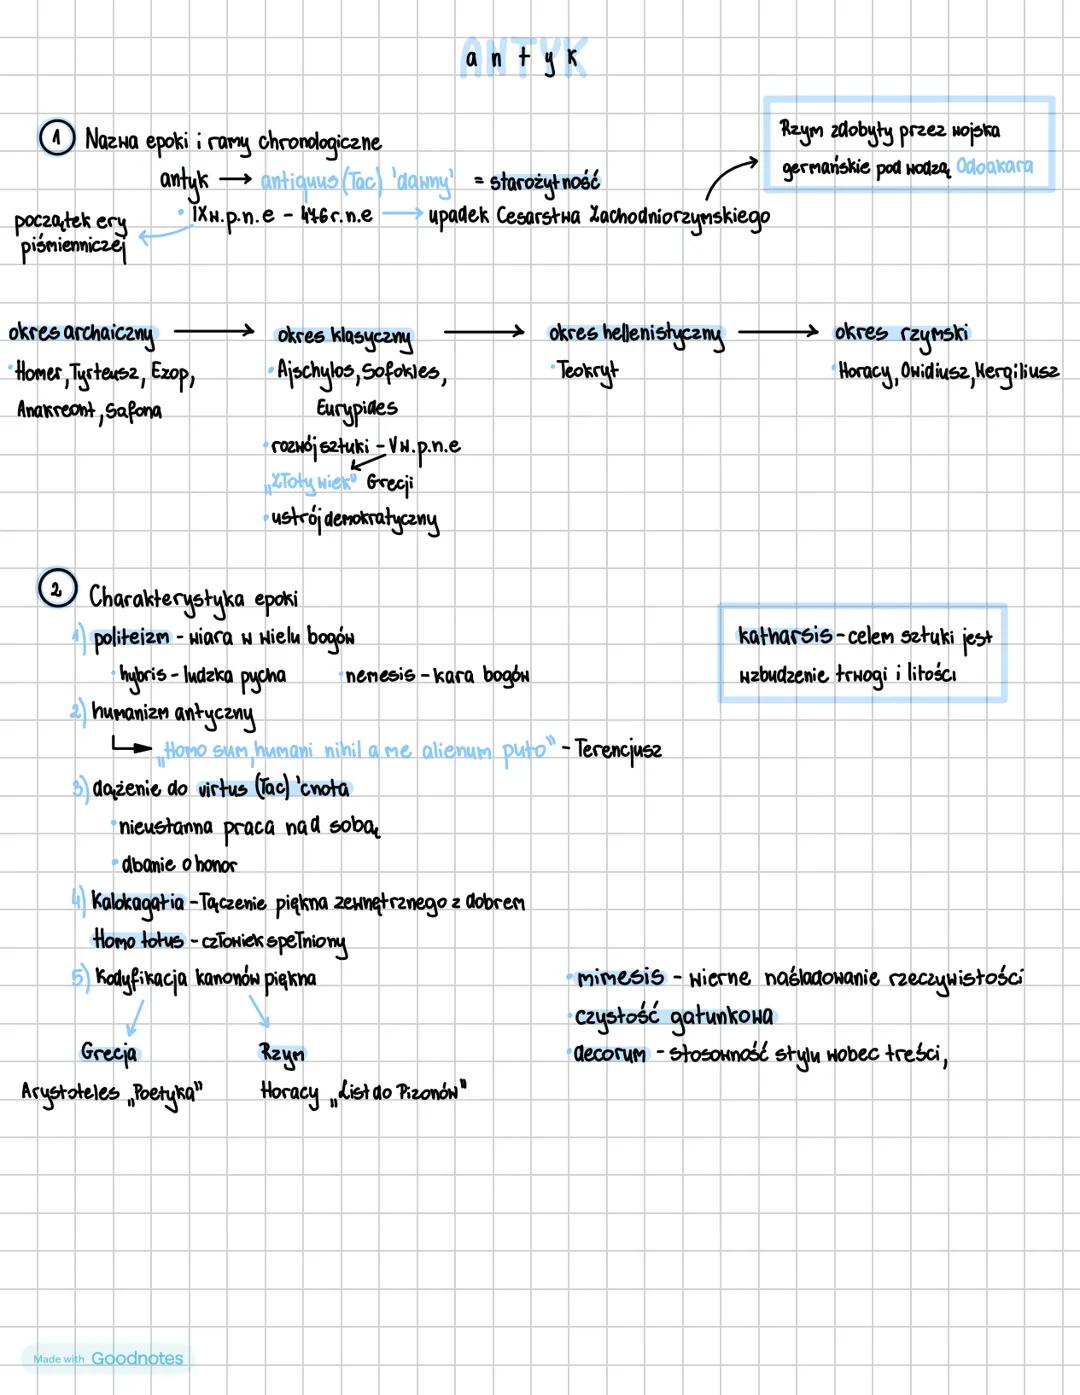 antyk
1 Nazwa epoki i ramy chronologiczne
antyk → antiquus (łac) 'dawny' = starożytność
IXw.p.n.e - 476r.n.e → upadek Cesarstwa Zachodniorzymskiego
początek ery
piśmienniczej
Rzym zdobyty przez wojska
germańskie pod wodzą Odoakara
okres archaiczny →
• Homer, Tyrteusz, Ezop,
Anakreont, Safona
okres klasyczny →
• Ajschylos, Sofokles,
Eurypides
• rozwój sztuki - Vw.p.n.e
„Złoty wiek" Grecji
• ustrój demokratyczny
okres hellenistyczny →
• Teokryt
okres rzymski
• Horacy, Owidiusz, Wergiliusz
2 Charakterystyka epoki
1) politeizm - wiara w wielu bogów
• hybris - ludzka pycha • nemesis - kara bogów
2) humanizm antyczny
„Homo sum, humani nihil a me alienum puto" - Terencjusz
3) dążenie do virtus (łac) 'cnota
• nieustanna praca nad sobą
• dbanie o honor
4) Kalokagatia - łączenie piękna zewnętrznego z dobrem
Homo totus - człowiek spełniony
5) Kodyfikacja kanonów piękna
Grecja
Arystoteles „Poetyka"
Rzym
Horacy „List do Pizonów"
katharsis - celem sztuki jest
wzbudzenie trwogi i litości
• mimesis - wierne naśladowanie rzeczywistości
• czystość gatunkowa
• decorum - stosowność stylu wobec treści,
Made with Goodnotes